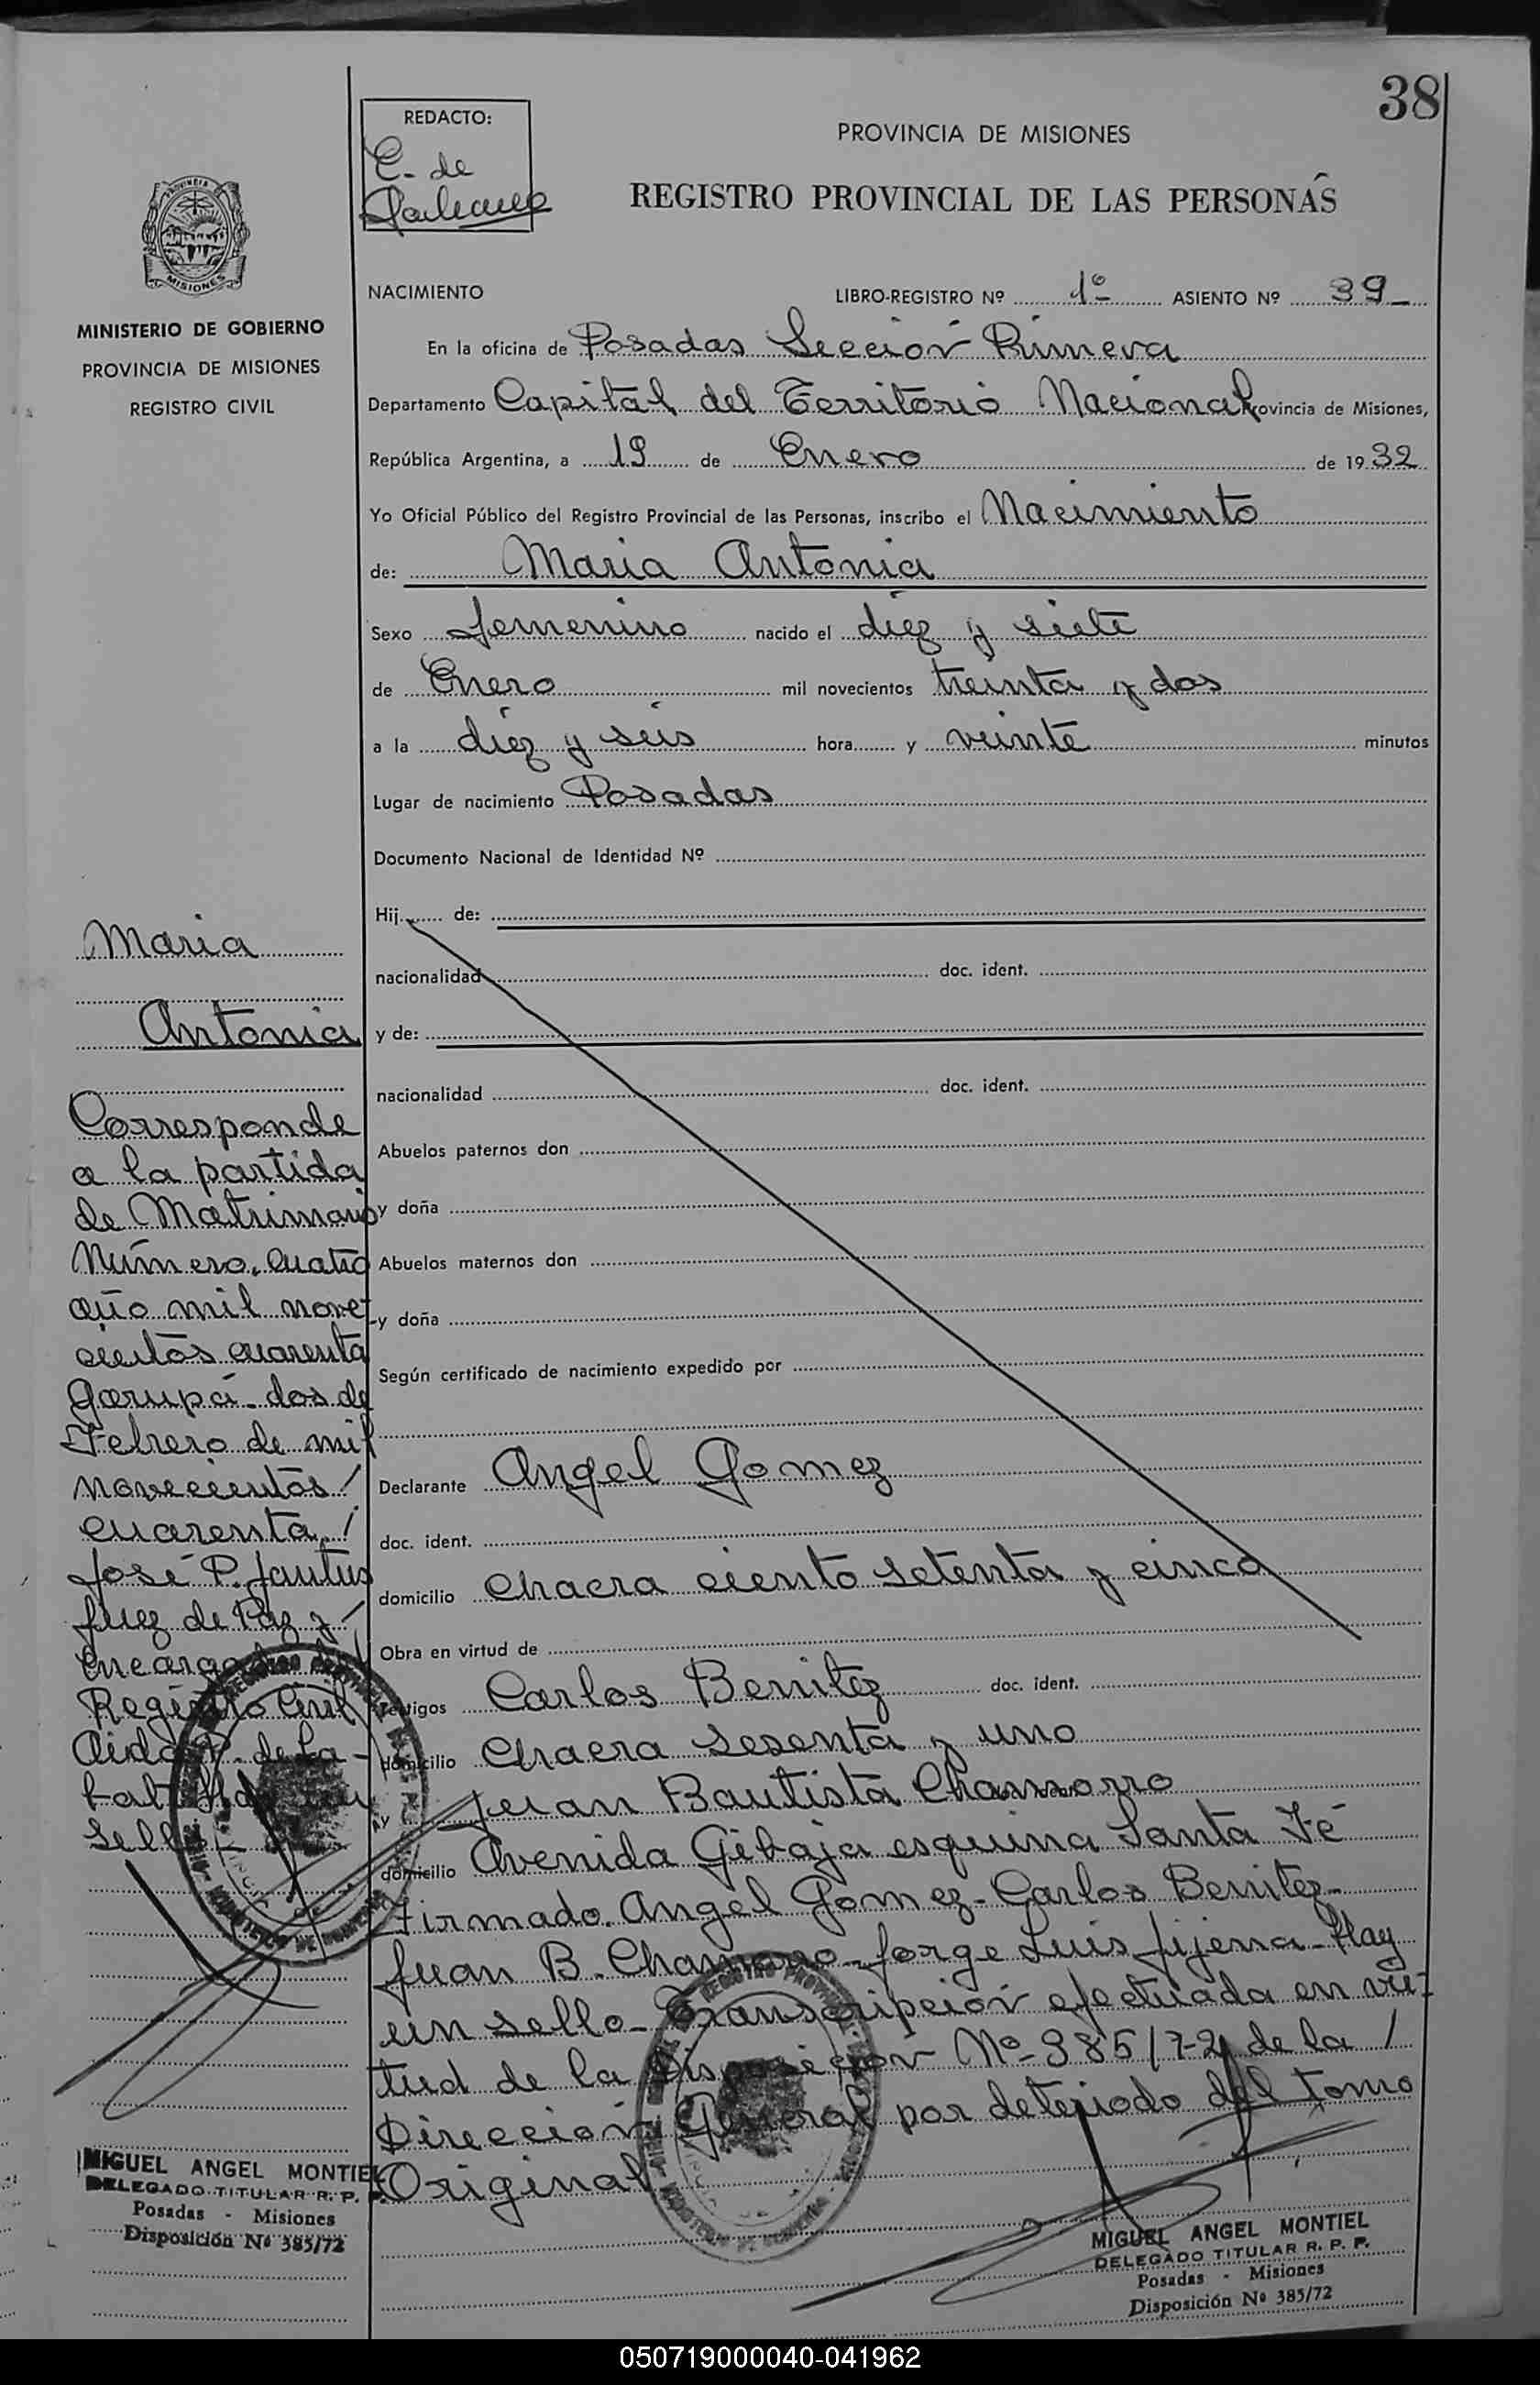 38
REDACTO:
C. de
PROVINCIA DE MISIONES
REGISTRO PROVINCIAL DE LAS PERSONAS
MISIONES
MINISTERIO DE GOBIERNO
PROVINCIA DE MISIONES
REGISTRO CIVIL
NACIMIENTO LIBRO-REGISTRO Nº 1º ASIENTO Nº 39
En la oficina de Posadas Sección Primera
Departamento Capital del Territorio Nacional Provincia de Misiones,
República Argentina, a 19 de Enero de 1932
Yo Oficial Público del Registro Provincial de las Personas, inscribo el Nacimiento
de: Maria Antonia
Sexo femenino nacido el diez y siete
de Enero mil novecientos treinta y dos
a la diez y seis hora y veinte minutos
Lugar de nacimiento Posadas
Documento Nacional de Identidad Nº
Hij de:
nacionalidad doc. ident.
y de:
nacionalidad doc. ident.
Abuelos paternos don
y doña
Abuelos maternos don
y doña
Según certificado de nacimiento expedido por
Declarante Angel Gomez
doc. ident.
domicilio Chacra ciento setenta y cinco
Obra en virtud de
Testigos Carlos Benitez doc. ident.
domicilio Chacra sesenta y uno
y Juan Bautista Chamorro
domicilio Avenida Gibaja esquina Santa Fé
Firmado. Angel Gomez - Carlos Benitez -
Juan B. Chamorro - Jorge Luis Jijena - Hay
un sello - Transcripción efectuada en vir-
tud de la Disposición Nº 385/72 de la /
Dirección General por deteriodo del tomo
Original
Maria
Antonia
Corresponde
a la partida
de Matrimonio
Número. Cuatro
año mil nove-
cientos cuarenta
Garupá - dos de
Febrero de mil
novecientos /
cuarenta. /
José P.
Juez de Paz y
Encargado
Registro Civil
Aida P. de La-
Hay un
sello -
MIGUEL ANGEL MONTIEL
DELEGADO TITULAR R. P. P.
Posadas - Misiones
Disposición Nº 385/72
MIGUEL ANGEL MONTIEL
DELEGADO TITULAR R. P. P.
Posadas - Misiones
Disposición Nº 385/72
050719000040-041962